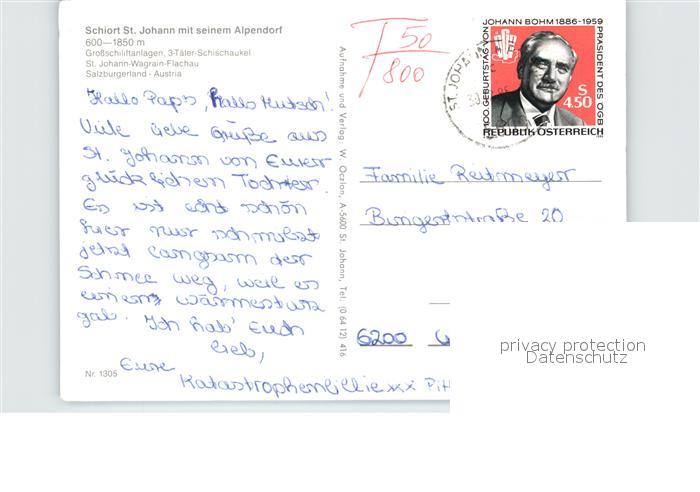 Schiort St. Johann mit seinem Alpendorf
600—1850 m
Großschiliftanlagen, 3-Täler-Schischaukel
St. Johann-Wagrain-Flachau
Salzburgerland - Austria
Hallo Paps, hallo Mutsch!
Viele liebe Grüße aus
St. Johann von Eurer
glücklichen Tochter.
Es ist echt schön
hier nur schmilzt
jetzt langsam der
Schnee weg, weil es
einen Wärmesturz
gab. Ich hab' Euch
lieb,
Eure
Katastrophenbillie xxx
Nr. 1305
Aufnahme und Verlag: W. Oczlon, A-5600 St. Johann, Tel. (0 64 12) 416
T 50
800
ST. JOHANN
100. GEBURTSTAG VON JOHANN BÖHM 1886-1959 PRÄSIDENT DES ÖGB
S
4.50
REPUBLIK ÖSTERREICH
Familie Reitmeyer
Bungertstraße 20
6200
privacy protection
Datenschutz